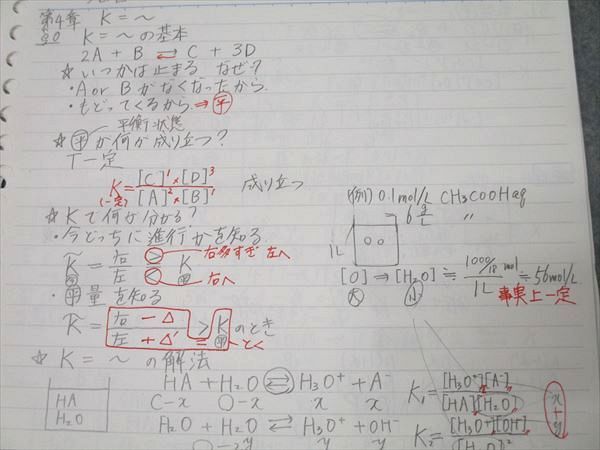 第4章 K = 〜
§0 K = 〜 の基本
2A + B ⇄ C + 3D
☆ いつかは止まる なぜ?
・A or B がなくなったから.
・もどってくるから. ⇒ 平
平衡状態
☆ 平 が何が成り立つ?
T一定
K = [C]¹×[D]³ / [A]²×[B]¹ 成り立つ
(一定)
☆ Kで何が分かる?
・今どっちに進行かを知る
K = 右 / 左 > K 右多すぎ 左へ
< 平 右へ
・平量を知る
K = 右 − Δ / 左 + Δ' > K のとき
= 平 とく
(例) 0.1mol/L CH₃COOH aq
6 g/L 〃
1L
[O] ⇒ [H₂O] ≒ 1000/18 mol / 1L ≒ 56mol/L
事実上一定
☆ K = 〜 の解法
HA
H₂O
HA + H₂O ⇄ H₃O⁺ + A⁻
C−x ○−x x x
H₂O + H₂O ⇄ H₃O⁺ + OH⁻
○−2y y y
K₁ = [H₃O⁺][A⁻] / [HA][H₂O]
K₂ = [H₃O⁺][OH⁻] / [H₂O]²
x+y